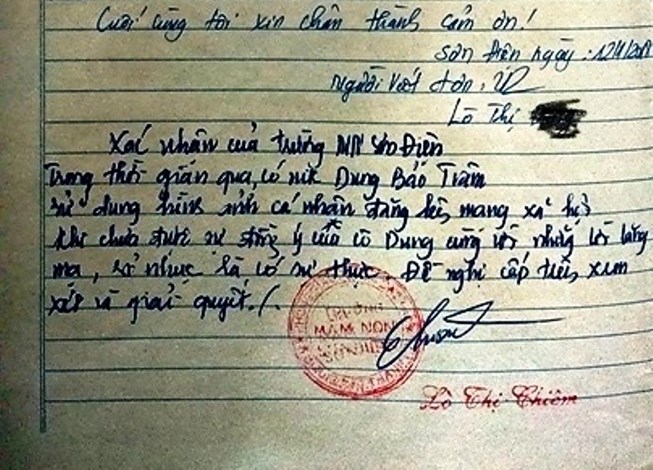 Cuối cùng tôi xin chân thành cảm ơn!
Sơn Điện ngày :
Người viết đơn.
Lò Thị
Xác nhận của trường MN Sơn Điện
Trong thời gian qua, có nick Dung Bảo Trâm
sử dụng hình ảnh cá nhân đăng lên mạng xã hội
khi chưa được sự đồng ý của cô Dung cùng với những lời lăng
mạ, sỉ nhục là có sự thực. Đề nghị cấp trên xem
xét và giải quyết./.
TRƯỜNG
MẦM NON
Lò Thị Chiêm